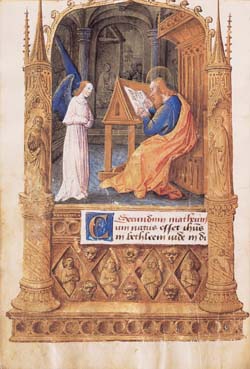 Secundum matheum
Cum natus esset ihus
in bethleem iude in di